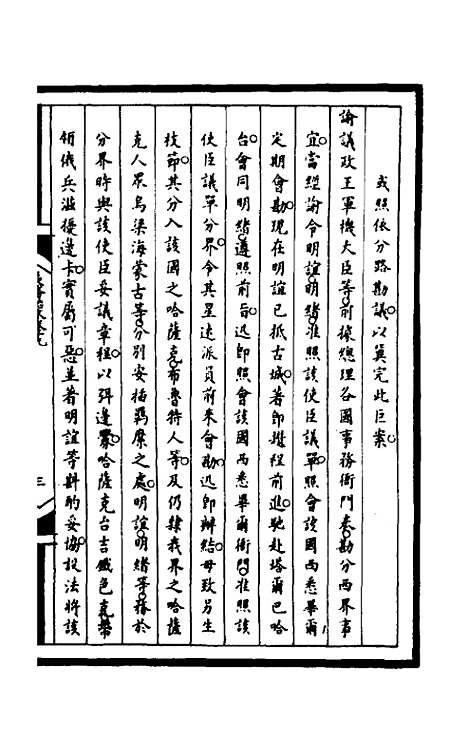 或照依分路勘議以冀完此巨案
諭議政王軍機大臣等前據總理各國事務衙門奏勘分西界事
宜當經諭令明誼明緒准照該使臣議單照會該國西悉畢爾
定期會勘現在明誼已抵古城著即趲程前進馳赴塔爾巴哈
台會同明緒遵照前旨迅即照會該國西悉畢爾衙門准照該
使臣議單分界令其星速派員前來會勘迅即辦結毋致另生
枝節其分入該國之哈薩克布魯特人等及仍隸我界之哈薩
克人眾烏梁海蒙古等分別安插羈縻之處明誼明緒等務於
分界時與該使臣妥議章程以弭邊釁哈薩克台吉鐵色克帶
領俄兵滋擾邊卡實屬可惡並著明誼等斟酌妥協設法將該
三